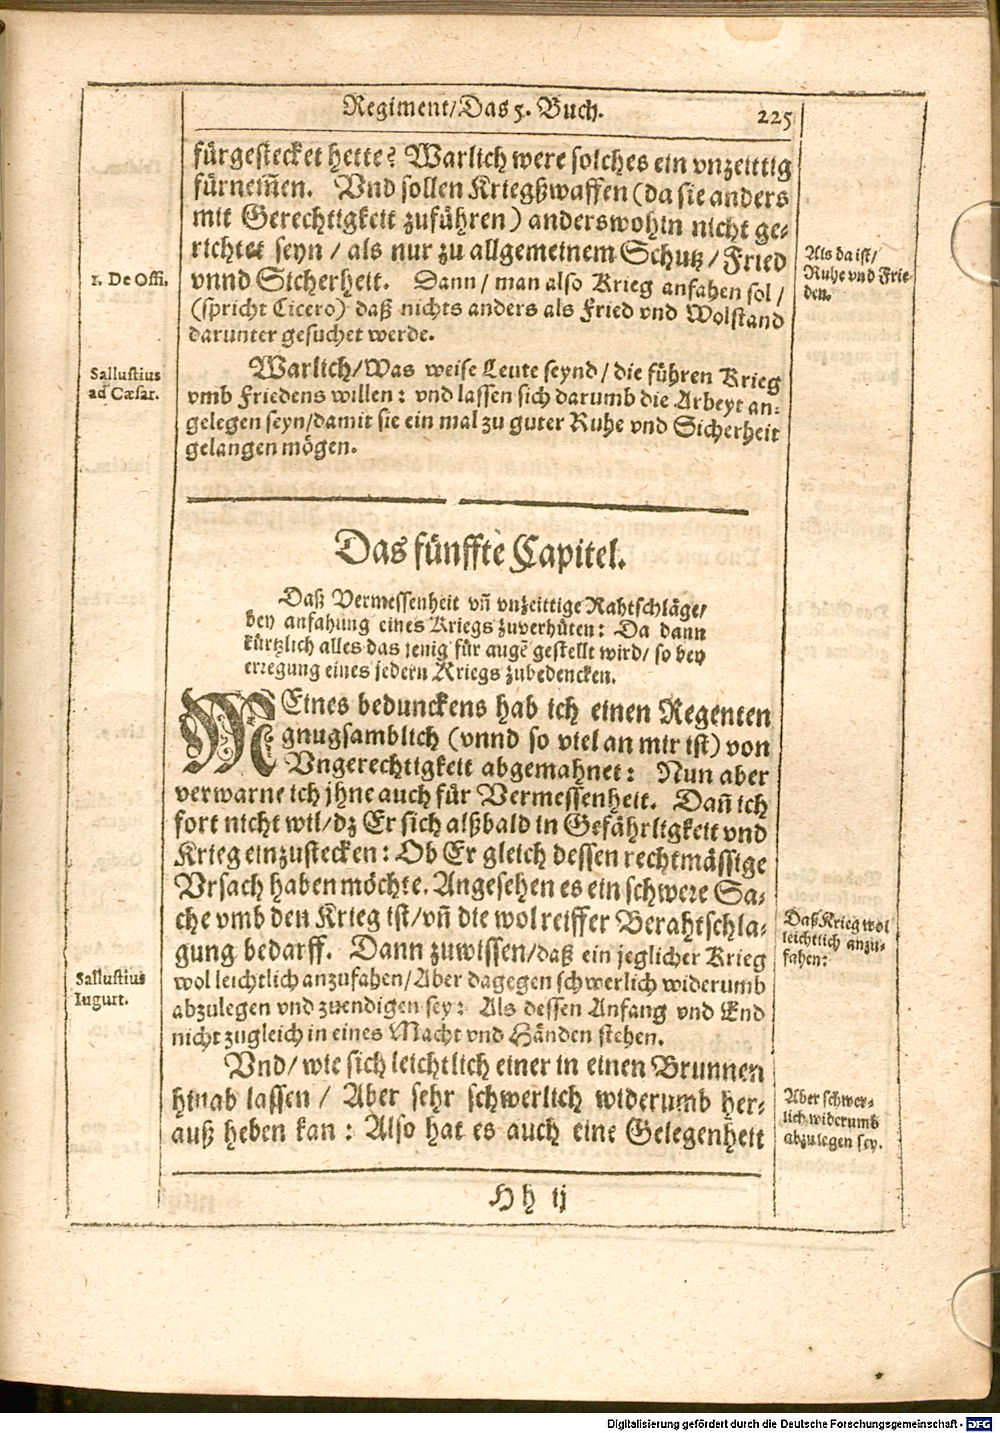 Regiment/Das 5. Buch. 225
fürgestecket hette? Warlich were solches ein vnzeittig
fürnem̃en. Vnd sollen Kriegßwaffen (da sie anders
mit Gerechtigkeit zuführen) anderswohin nicht ge-
richtet seyn / als nur zu allgemeinem Schutz / Fried
vnnd Sicherheit. Dann / man also Krieg anfahen sol /
(spricht Cicero) daß nichts anders als Fried vnd Wolstand
darunter gesuchet werde.
Als da ist/
Ruhe vnd Frie-
den.
1. De Offi.
Warlich/Was weise Leute seynd / die führen Krieg
vmb Friedens willen: vnd lassen sich darumb die Arbeyt an-
gelegen seyn/damit sie ein mal zu guter Ruhe vnd Sicherheit
gelangen mögen.
Sallustius
ad Cæsar.
Das fünffte Capitel.
Daß Vermessenheit vñ vnzeittige Rahtschläge/
bey anfahung eines Kriegs zuverhüten: Da dann
kürtzlich alles das jenig für augẽ gestellt wird/ so bey
erregung eines jedern Kriegs zubedencken.
MEines bedunckens hab ich einen Regenten
gnugsamblich (vnnd so viel an mir ist) von
Vngerechtigkeit abgemahnet: Nun aber
verwarne ich jhne auch für Vermessenheit. Dañ ich
fort nicht wil/dz Er sich alßbald in Gefährligkeit vnd
Krieg einzustecken: Ob Er gleich dessen rechtmässige
Vrsach haben möchte. Angesehen es ein schwere Sa-
che vmb den Krieg ist/vñ die wol reiffer Berahtschla-
gung bedarff. Dann zuwissen/daß ein jeglicher Krieg
wol leichtlich anzufahen/Aber dagegen schwerlich widerumb
abzulegen vnd zuendigen sey: Als dessen Anfang vnd End
nicht zugleich in eines Macht vnd Händen stehen.
Daß Krieg wol
leichtlich anzu-
fahen:
Sallustius
Iugurt.
Vnd/ wie sich leichtlich einer in einen Brunnen
hinab lassen / Aber sehr schwerlich widerumb her-
auß heben kan: Also hat es auch eine Gelegenheit
Aber schwer-
lich widerumb
abzulegen sey.
Hh ij
Digitalisierung gefördert durch die Deutsche Forschungsgemeinschaft - DFG